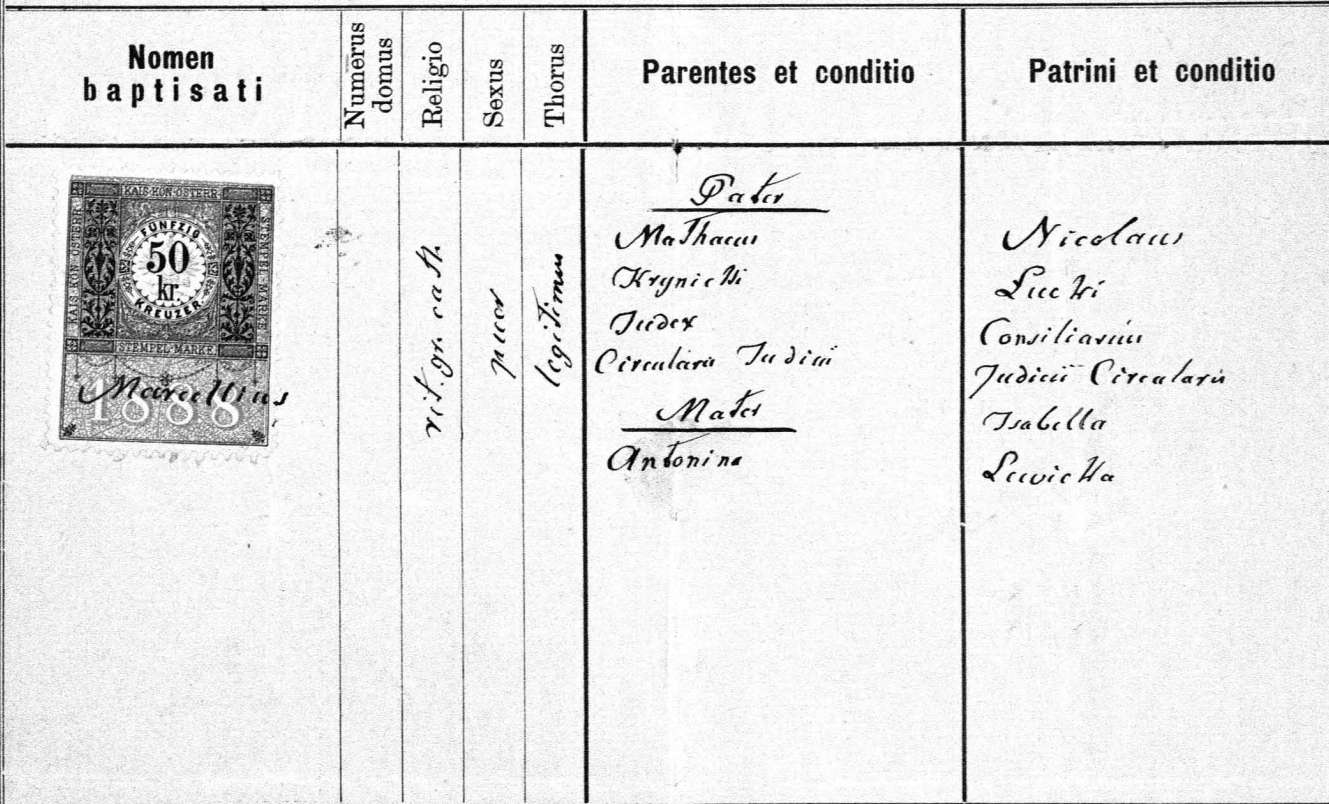 Nomen
baptisati
Numerus
domus
Religio
Sexus
Thorus
Parentes et conditio
Patrini et conditio
KAIS·KÖN·ÖSTERR·
KAIS·KÖN·ÖSTERR·
STEMPEL-MARKE
FÜNFZIG
50
kr.
KREUZER
STEMPEL-MARKE
1888
Marcellinus
rit. gr. cath.
puer
legitimus
Pater
Mathaeus
Krynicki
Judex
Circularis Judicii
Mater
Antonina
Nicolaus
Lucki
Consiliarius
Judicii Circularis
Isabella